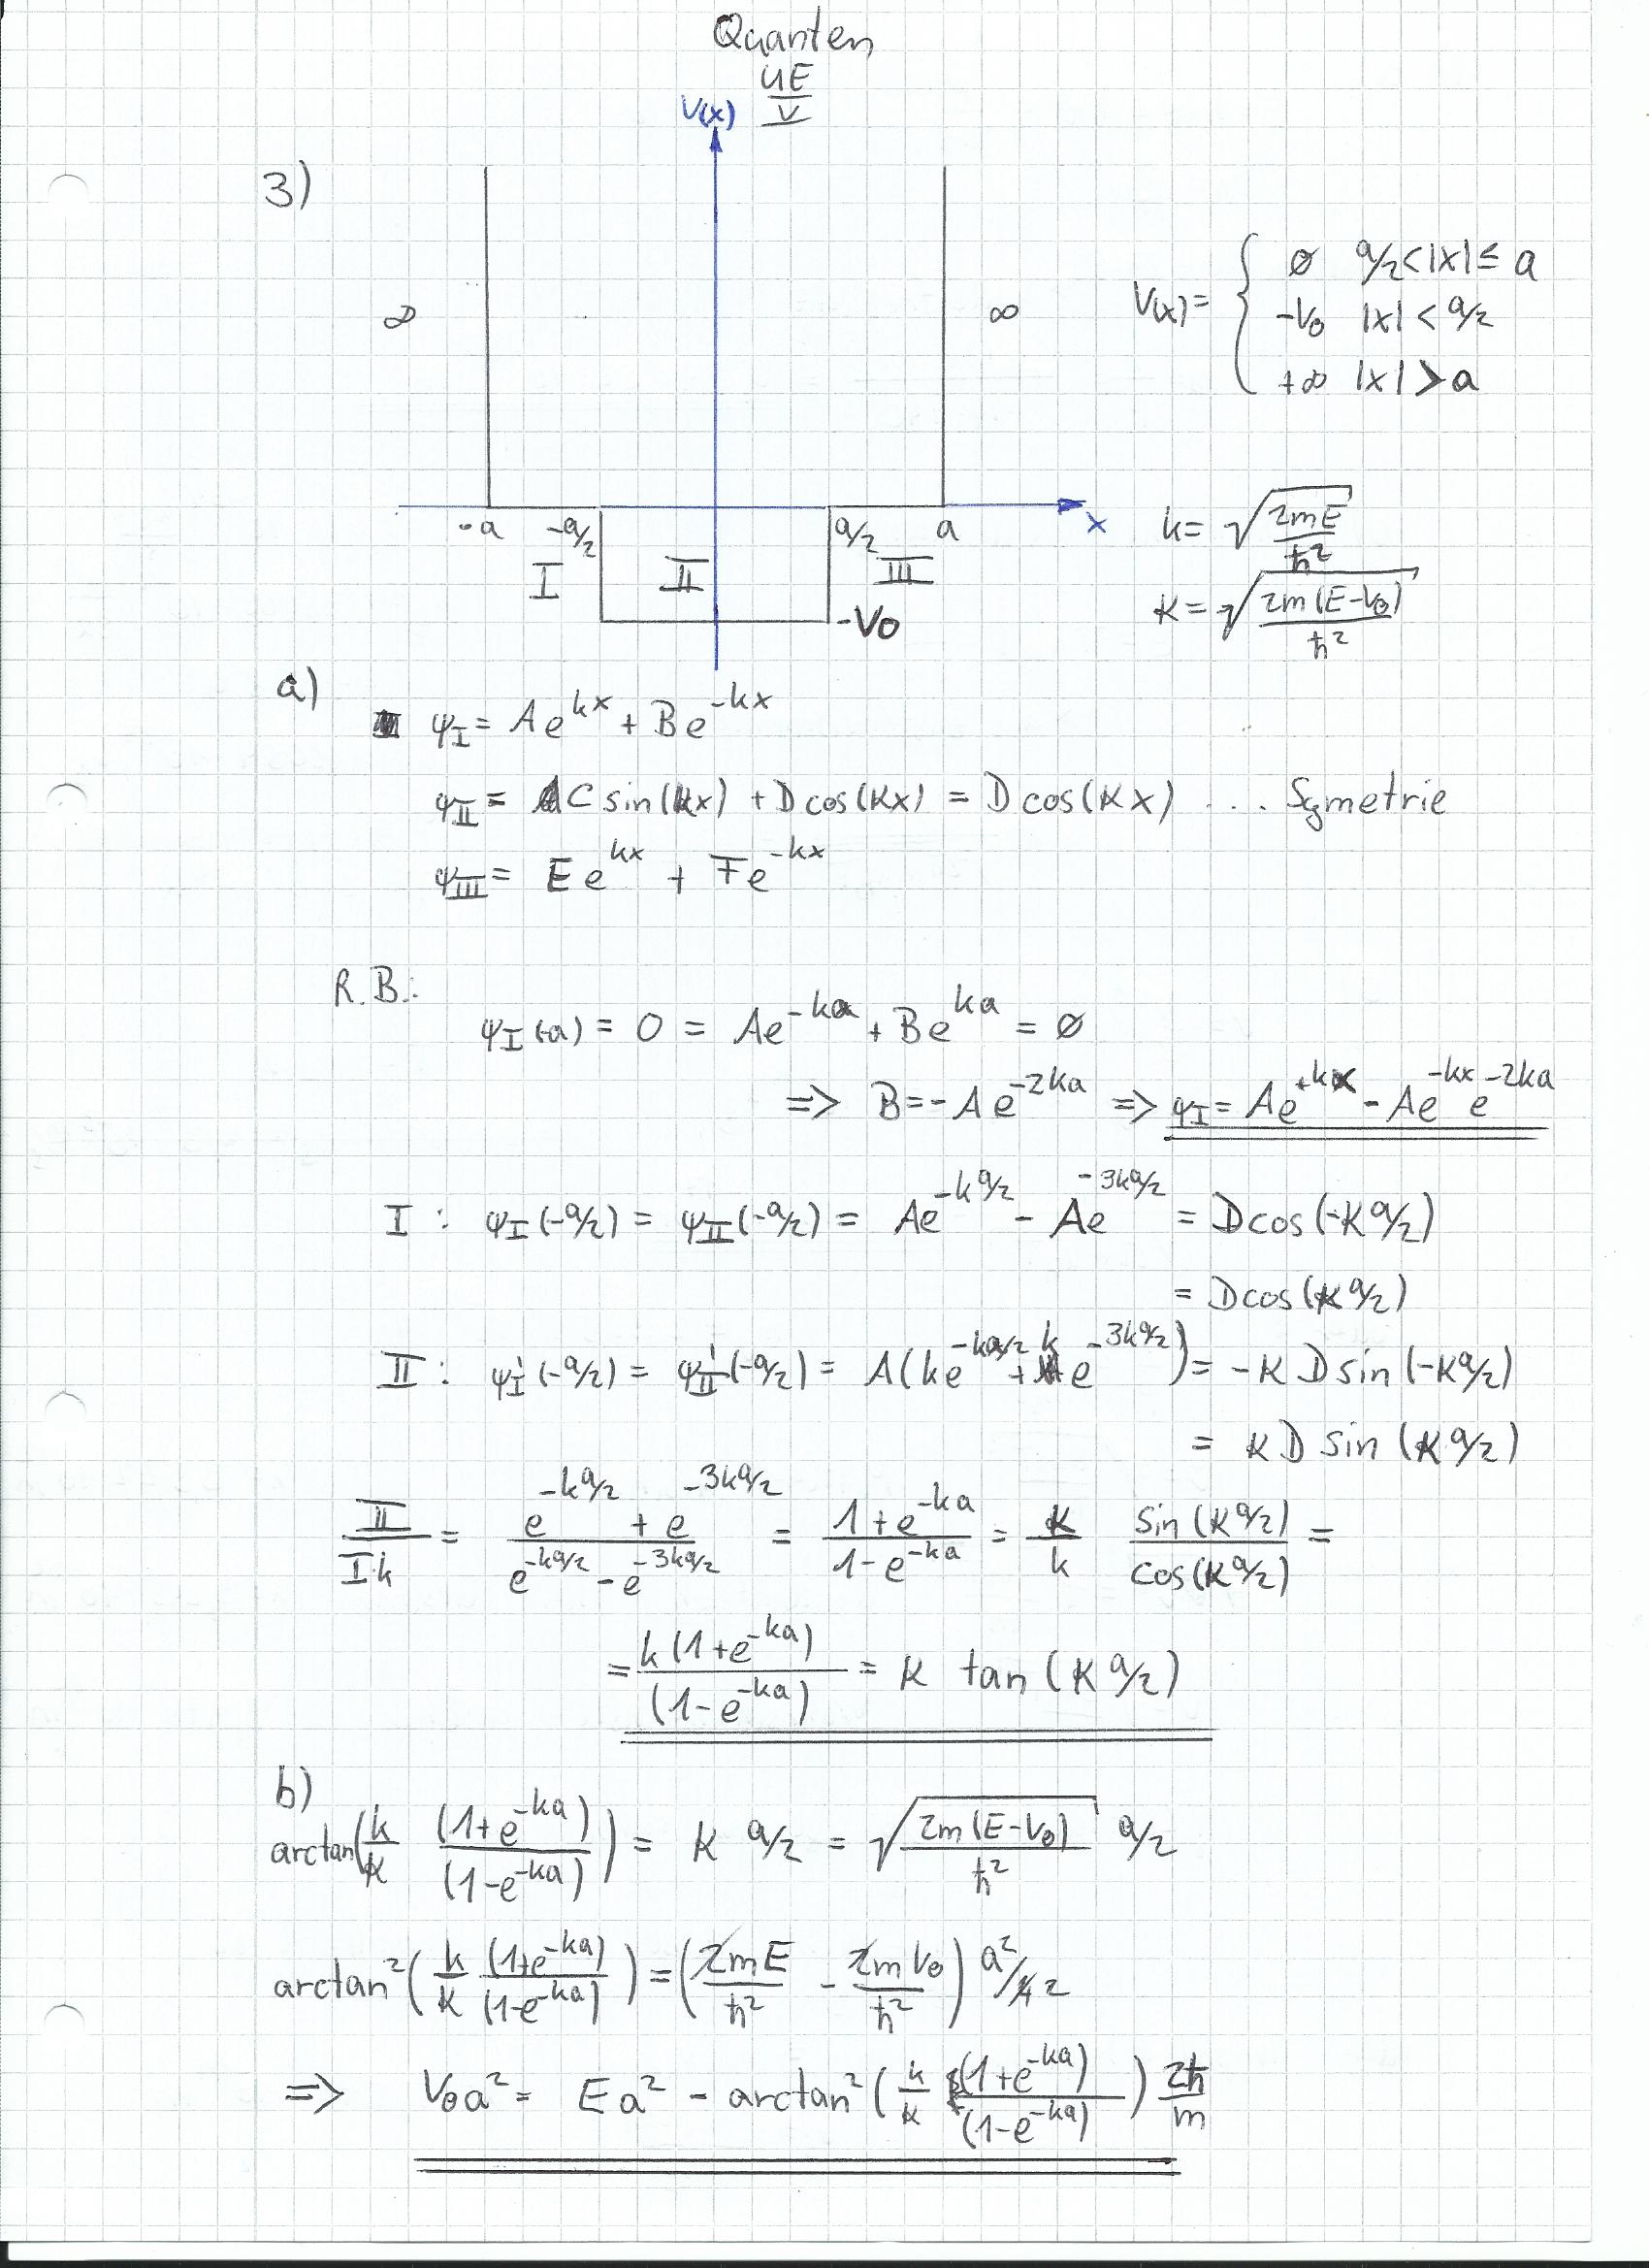 Quanten
UE
V
V(x)
3)
∞
∞
V(x) = { 0 a/2 < |x| ≤ a
-V0 |x| < a/2
+∞ |x| > a
-a -a/2 a/2 a x
I II III
-V0
k = √(2mE/ħ²)
K = √(2m(E-V0)/ħ²)
a)
ψ_I = A e^{kx} + B e^{-kx}
ψ_II = C sin(Kx) + D cos(Kx) = D cos(Kx) .... Symetrie
ψ_III = E e^{kx} + F e^{-kx}
R.B.:
ψ_I(-a) = 0 = A e^{-ka} + B e^{ka} = 0
=> B = -A e^{-2ka} => ψ_I = A e^{+kx} - A e^{-kx} e^{-2ka}
I : ψ_I(-a/2) = ψ_II(-a/2) = A e^{-ka/2} - A e^{-3ka/2} = D cos(-K a/2)
= D cos(K a/2)
II : ψ'_I(-a/2) = ψ'_II(-a/2) = A(k e^{-ka/2} + k e^{-3ka/2}) = -K D sin(-K a/2)
= K D sin(K a/2)
II/(I·k) = (e^{-ka/2} + e^{-3ka/2})/(e^{-ka/2} - e^{-3ka/2}) = (1+e^{-ka})/(1-e^{-ka}) = K/k sin(K a/2)/cos(K a/2) =
= k(1+e^{-ka})/(1-e^{-ka}) = K tan(K a/2)
b)
arctan(k/K (1+e^{-ka})/(1-e^{-ka})) = K a/2 = √(2m(E-V0)/ħ²) a/2
arctan²(k/K (1+e^{-ka})/(1-e^{-ka})) = (2mE/ħ² - 2mV0/ħ²) a²/4 2
=> V0a² = Ea² - arctan²(k/K (1+e^{-ka})/(1-e^{-ka})) 2ħ/m